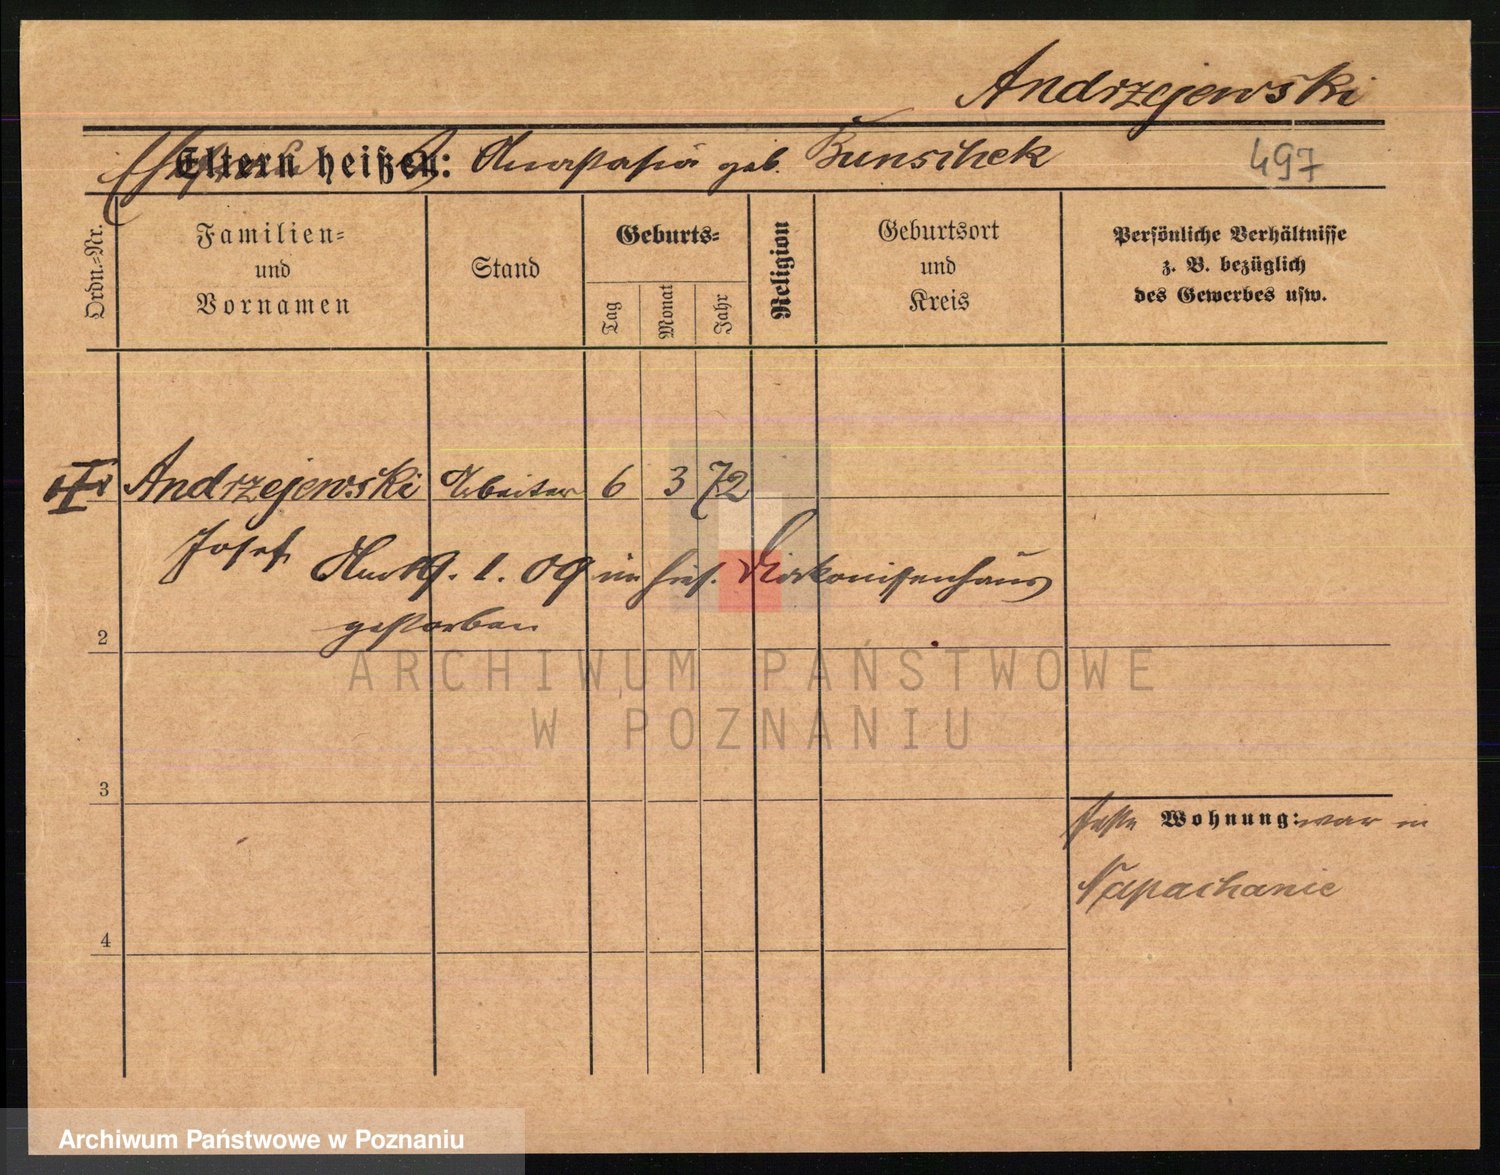 Andrzejewski
Eltern heißen: Anastasia geb. Bunschek
497
Ordn.-Nr.
Familien-
und
Vornamen
Stand
Geburts-
Tag
Monat
Jahr
Religion
Geburtsort
und
Kreis
Persönliche Verhältnisse
z. B. bezüglich
des Gewerbes usw.
Andrzejewski Arbeiter 6 3 72
Josef
Am 19. 1. 09 im hies. Diakonissenhaus
gestorben
2
3
4
feste Wohnung: war in
Napachanie
ARCHIWUM PAŃSTWOWE
W POZNANIU
Archiwum Państwowe w Poznaniu